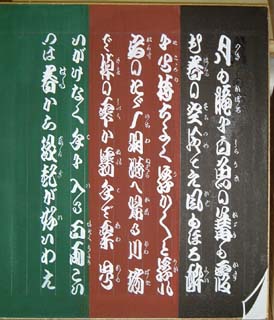 月も朧に白魚の篝も霞
む春の空冷てえ風もほろ酔
に心持ちよくうかうかと浮れ
烏のただ一羽塒へ帰る川端
で棹の雫か濡手で粟思
いがけなく手に入る百両こい
つは春から縁起が好いわえ